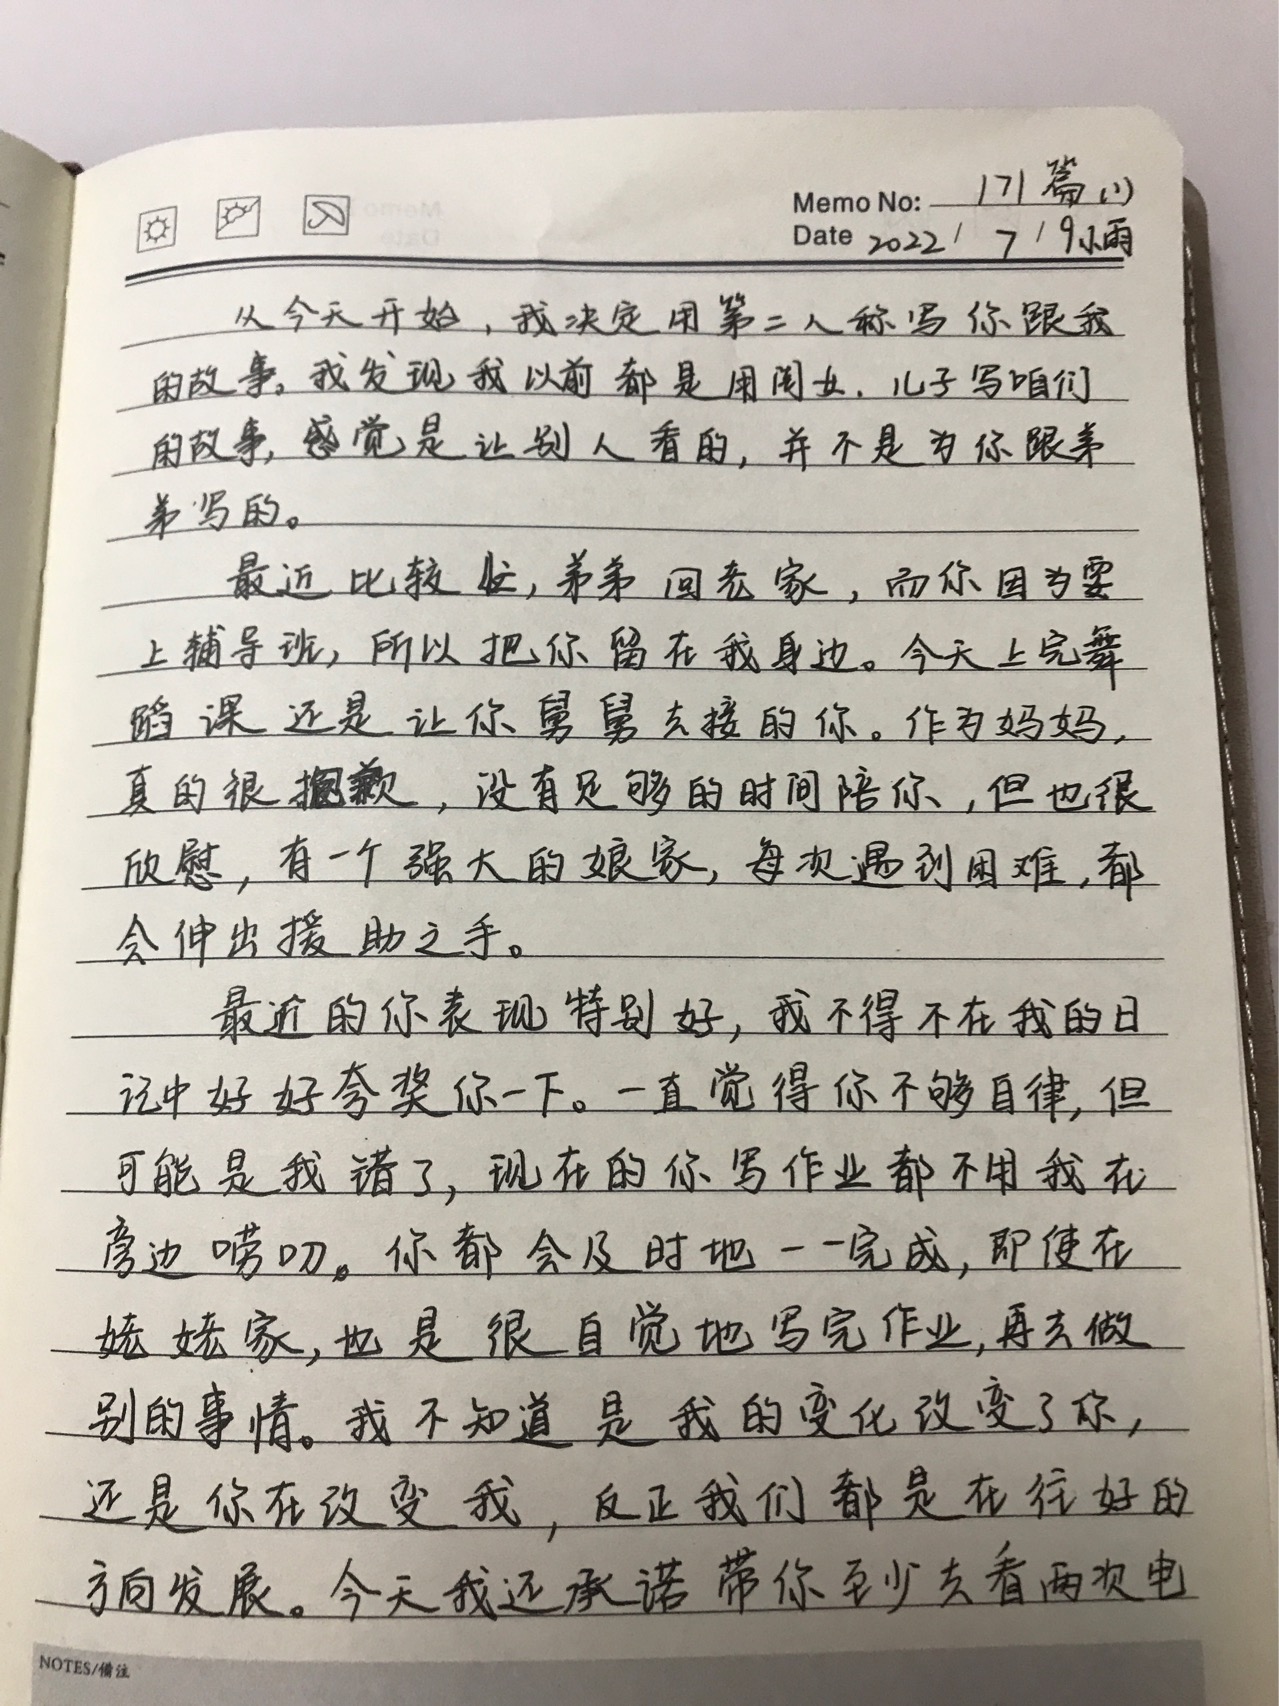 Memo No: 171篇(1)
Date 2022/7/9小雨
从今天开始，我决定用第二人称写你跟我
的故事。我发现我以前都是用闺女、儿子写咱们
的故事，感觉是让别人看的，并不是为你跟弟
弟写的。
最近比较忙，弟弟回老家，而你因为要
上辅导班，所以把你留在我身边。今天上完舞
蹈课还是让你舅舅去接的你。作为妈妈，
真的很抱歉，没有足够的时间陪你，但也很
欣慰，有一个强大的娘家，每次遇到困难，都
会伸出援助之手。
最近的你表现特别好，我不得不在我的日
记中好好夸奖你一下。一直觉得你不够自律，但
可能是我错了，现在的你写作业都不用我在
旁边唠叨。你都会及时地一一完成，即使在
姥姥家，也是很自觉地写完作业，再去做
别的事情。我不知道是我的变化改变了你，
还是你在改变我，反正我们都是在往好的
方向发展。今天我还承诺带你至少去看两次电
NOTES/備注